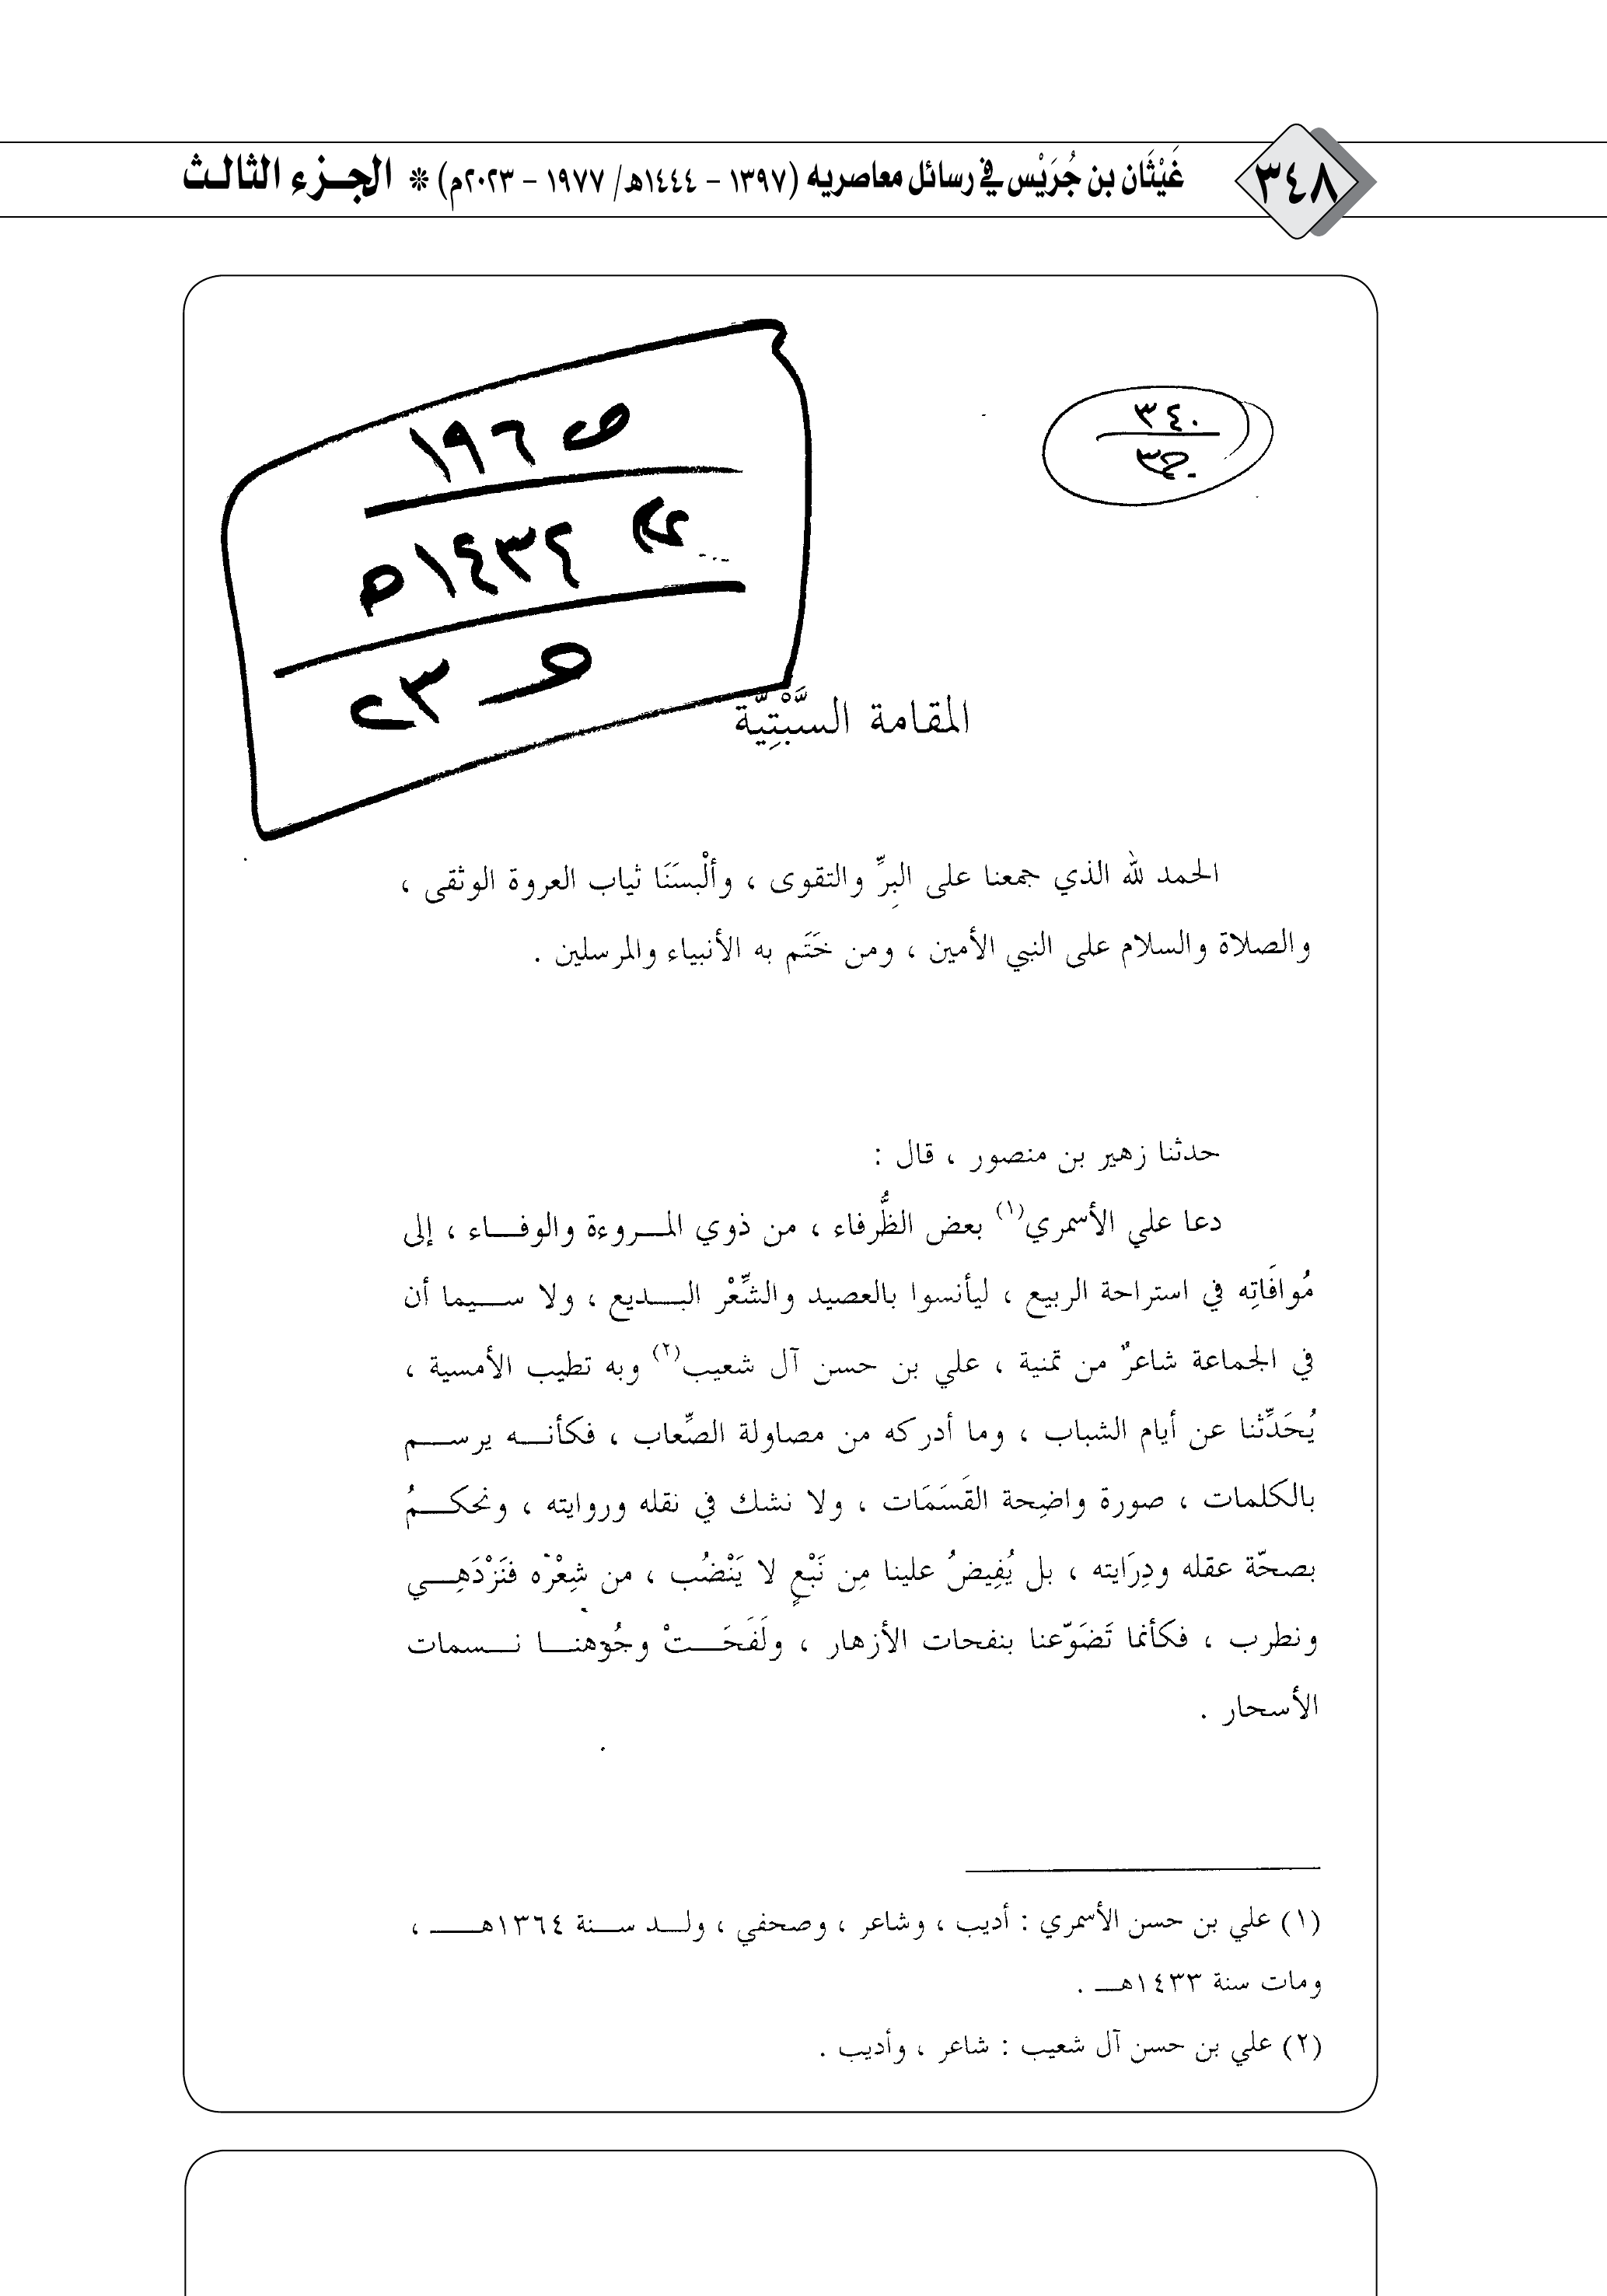 ٣٤٨
غَيْثَان بن جُرَيْس في رسائل معاصريه (١٣٩٧ - ١٤٤٤هـ/ ١٩٧٧ - ٢٠٢٣م) * الجـزء الثالث
٣٤٠
ج٣
ص ١٩٦
١٤٣٢هـ
٢٣
المقامة السَّبْتِيَّة
الحمد لله الذي جمعنا على البِرِّ والتقوى ، وألْبسَنَا ثياب العروة الوثقى ،
والصلاة والسلام على النبي الأمين ، ومن خَتَم به الأنبياء والمرسلين .
حدثنا زهير بن منصور ، قال :
دعا علي الأسمري(١) بعض الظُّرفاء ، من ذوي المـروءة والوفـاء ، إلى
مُوافَاتِه في استراحة الربيع ، ليأنسوا بالعصيد والشِّعْر البـديع ، ولا سـيما أن
في الجماعة شاعرٌ من تمنية ، علي بن حسن آل شعيب(٢) وبه تطيب الأمسية ،
يُحَدِّثنا عن أيام الشباب ، وما أدركه من مصاولة الصِّعاب ، فكأنـه يرسـم
بالكلمات ، صورة واضِحة القَسَمَات ، ولا نشك في نقله وروايته ، ونحكـمُ
بصحّة عقله ودِرَايته ، بل يُفِيضُ علينا مِن نَبْعٍ لا يَنْضُب ، من شِعْره فنَزْدَهِـي
ونطرب ، فكأنما تَضَوّعنا بنفحات الأزهار ، ولَفَحَـتْ وجُوهنـا نـسمات
الأسحار .
(١) علي بن حسن الأسمري : أديب ، وشاعر ، وصحفي ، ولـد سـنة ١٣٦٤هـ ،
ومات سنة ١٤٣٣هـ .
(٢) علي بن حسن آل شعيب : شاعر ، وأديب .